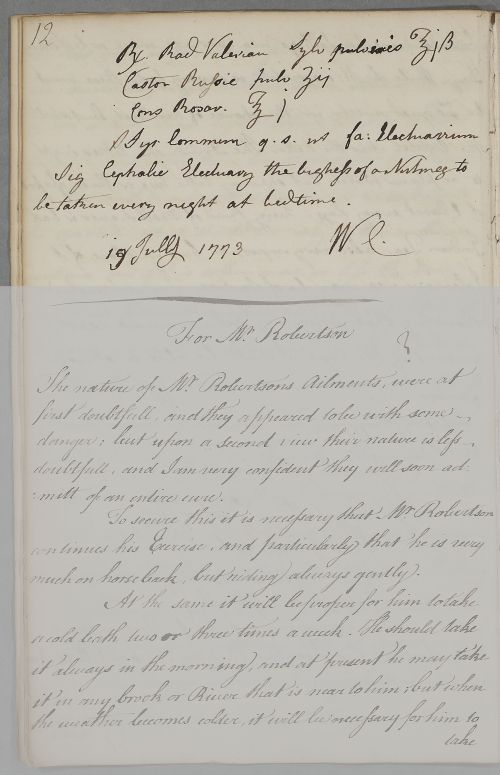 12
Rx. Rad Valerian Sylv pulv ℥j ß
Castor Russie pulv ʒij
Cons Rosar. ℥j
Syr: Commun q. s. ut fa: Electuarium
Sig Cephalic Electuary the bigness of a Nutmeg to
be taken every night at bedtime.
19 Jully 1773 W C.
For Mr. Robertson
The nature of Mr. Robertsons Ailments, were at
first doubtfull, and they appeared to be with some
danger; but upon a second view their nature is less
doubtfull, and I am very confident they will soon ad:
:mitt of an entire cure.
To secure this it is necessary that Mr Robertson
continues his Exercise, and particularly that he is very
much on horseback, but riding always gently.
At the same it will be proper for him to take
a cold bath two or three times a week. He should take
it always in the morning, and at present he may take
it in any brook or River that is near to him; but when
the weather becomes colder, it will be necessary for him to
take